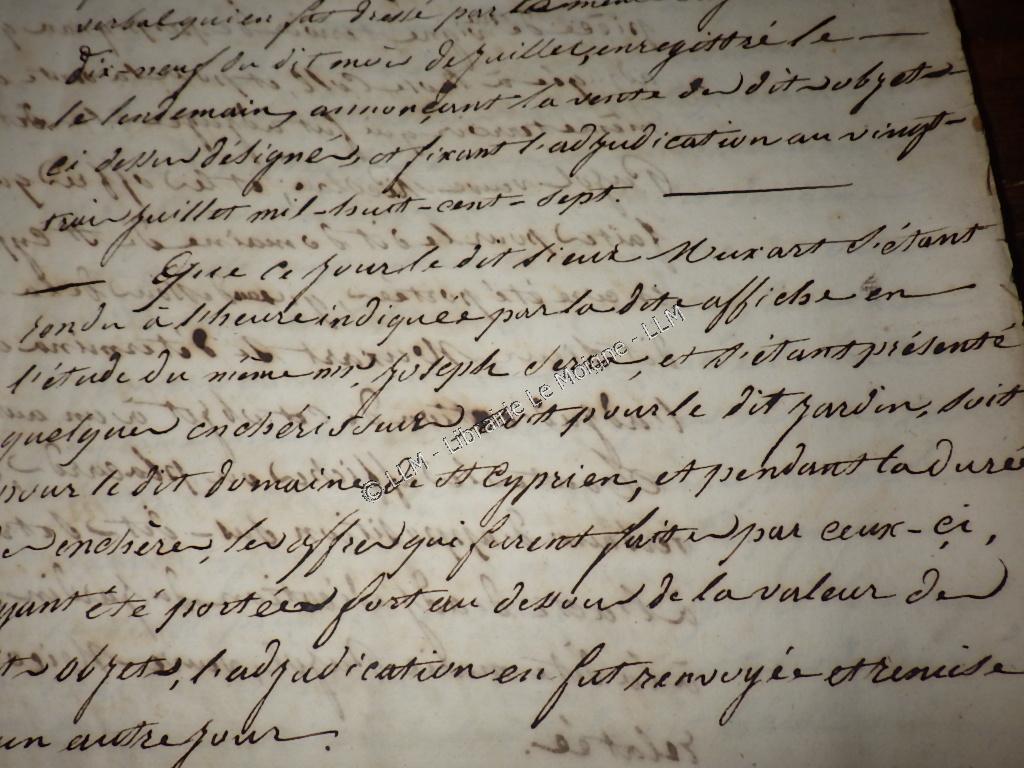 verbal qui en fut dressé par le même
dix-neuf du dit mois de juillet, enregistré le —
le lendemain, annonçant la vente des dits objets
ci dessus désignés, et fixant l'adjudication au vingt-
trois juillet mil-huit-cent-sept. —
— Que ce jour le dit sieur Muxart s'étant
rendu à l'heure indiquée par la dite affiche en
l'étude du même me, Joseph Serra, et s'étant présenté
quelques enchérisseurs soit pour le dit jardin, soit
pour le dit domaine de St Cyprien, et pendant la durée
enchères, les offres qui furent faites par ceux-ci,
yant été portées fort au dessous de la valeur des
ts objets, l'adjudication en fut renvoyée et remise
un autre jour.
relatée.
© LLM - Librairie Le Moigne - LLM